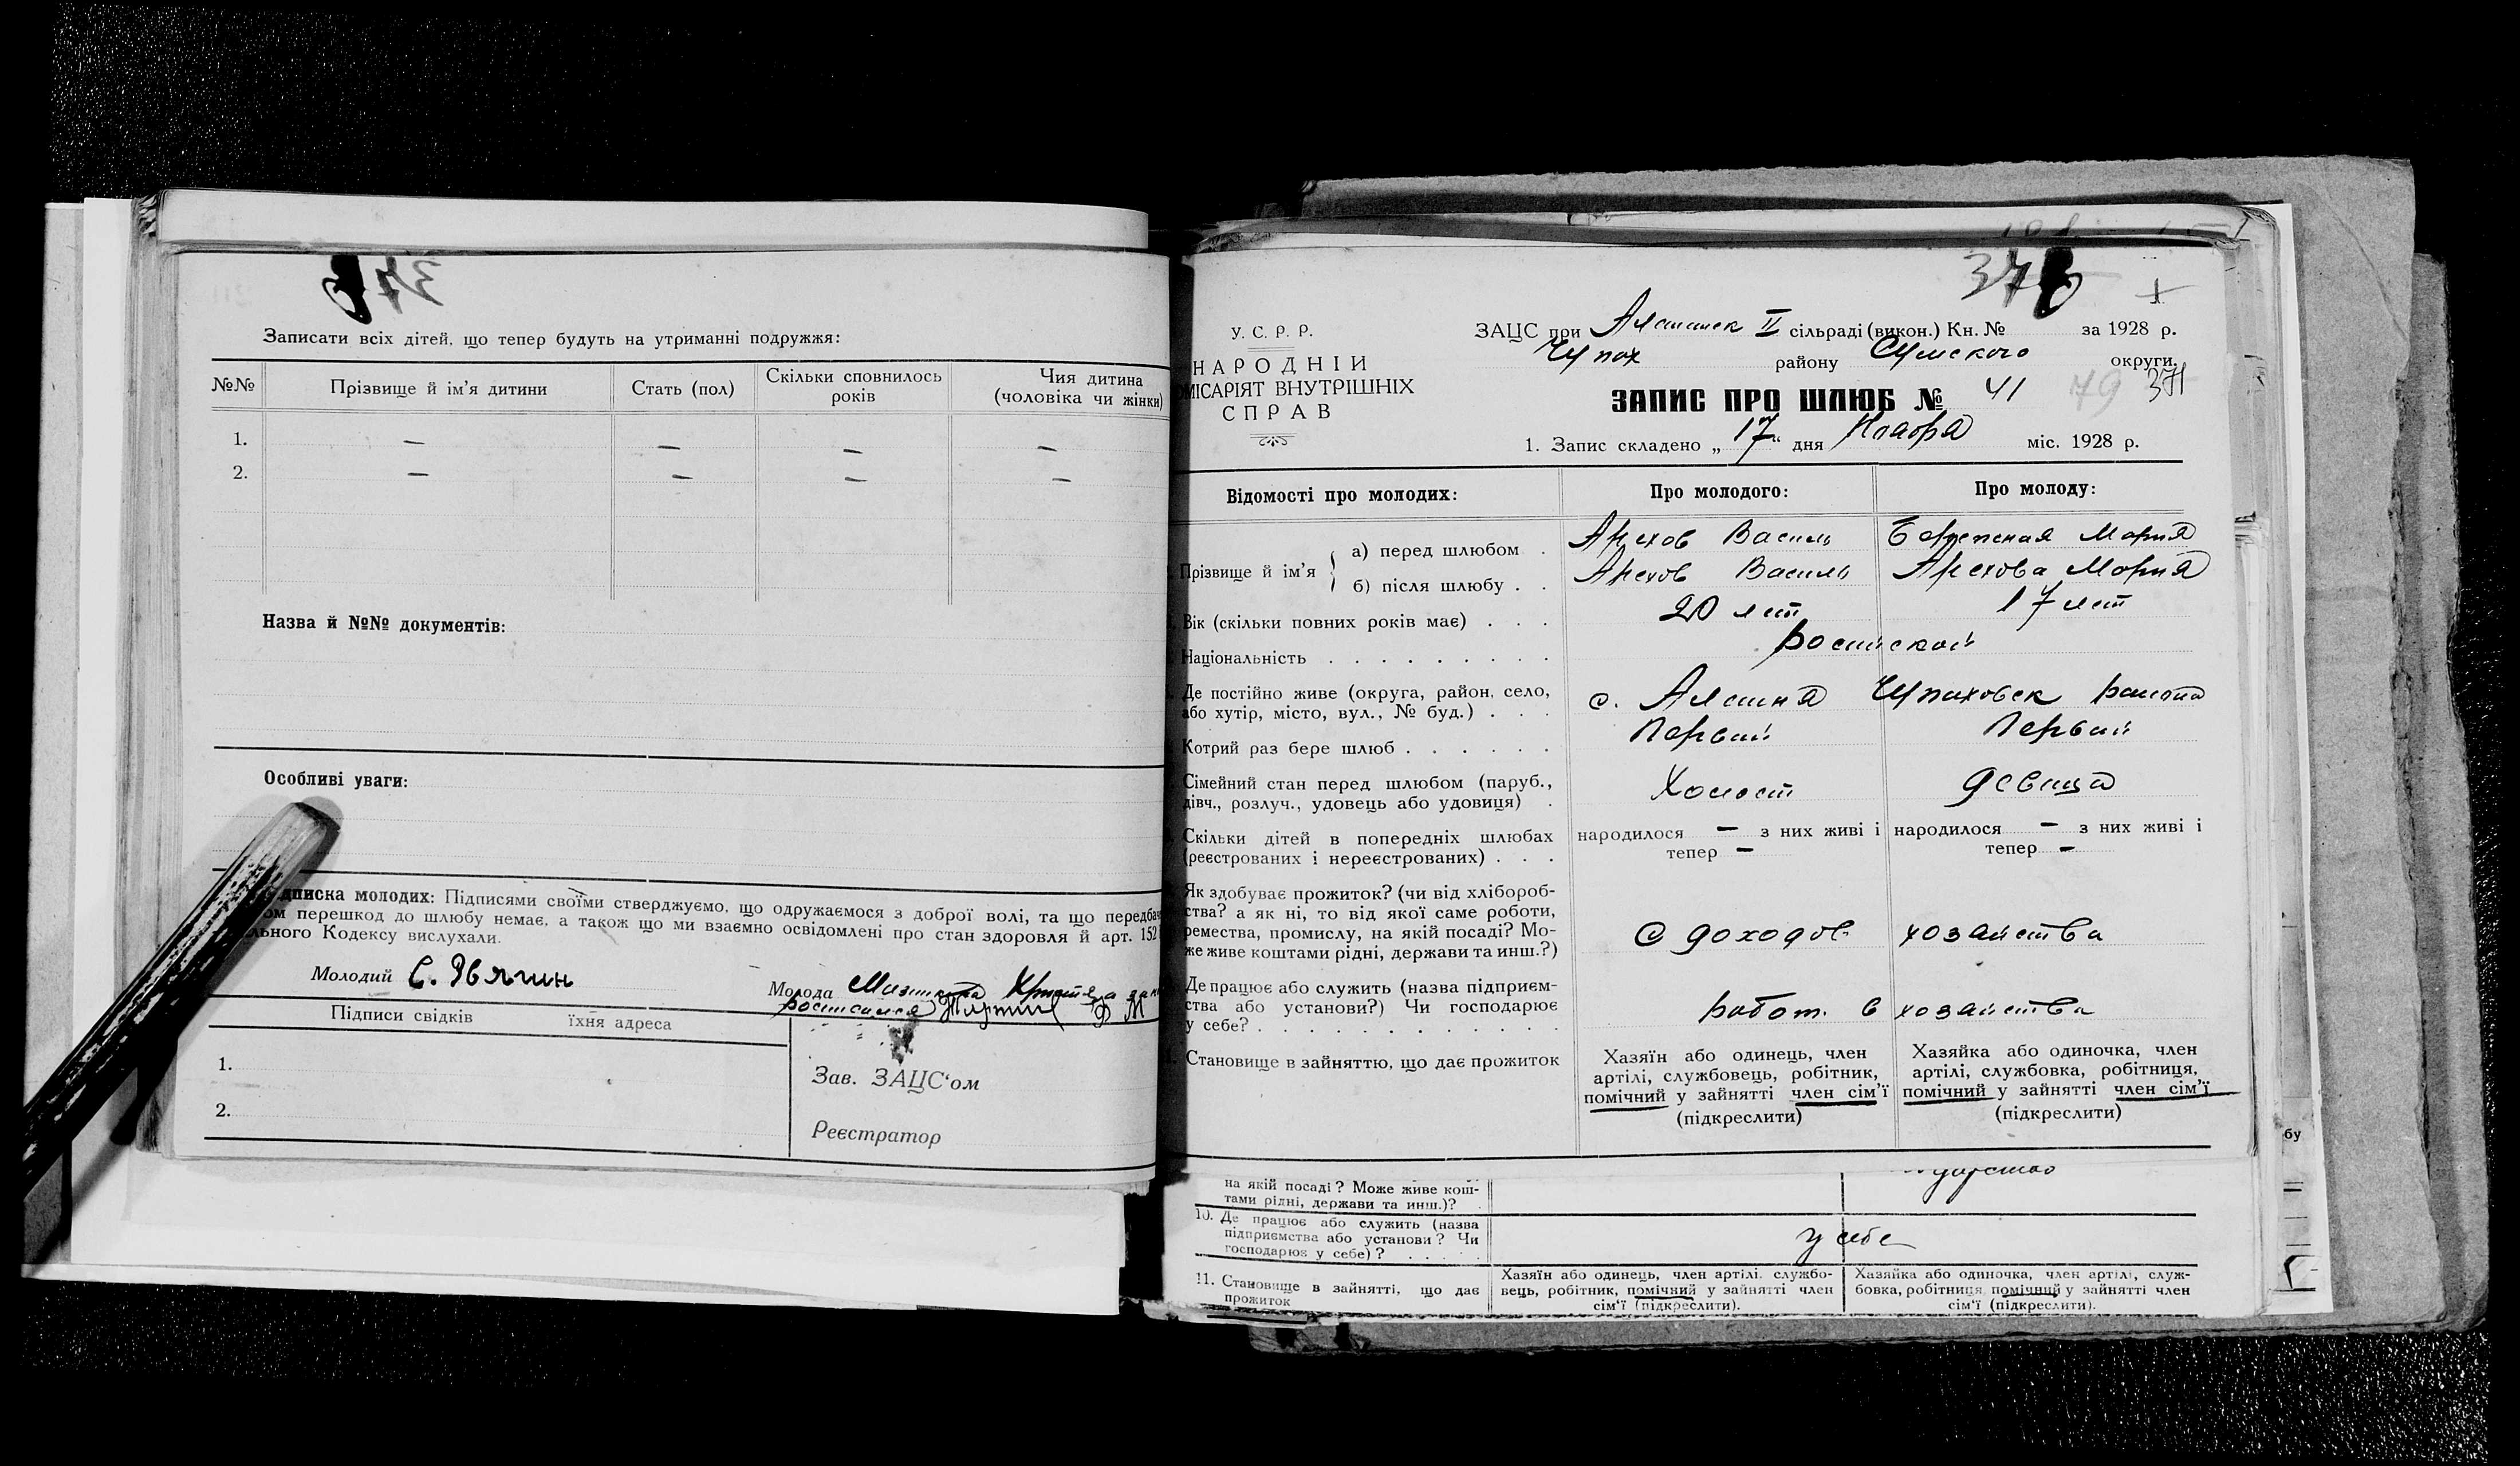 Записати всіх дітей, що тепер будуть на утриманні подружжя:
№№ Прізвище й ім'я дитини Стать (пол) Скільки сповнилось років Чия дитина (чоловіка чи жінки)
1. — — — —
2. — — — —
Назва й №№ документів:
Особливі уваги:
дписка молодих: Підписями своїми стверджуємо, що одружаємося з доброї волі, та що передбач
ом перешкод до шлюбу немає, а також що ми взаємно освідомлені про стан здоровля й арт. 152
льного Кодексу вислухали.
Молодий
Молода
Підписи свідків їхня адреса
1.
2.
Зав. ЗАЦС'ом
Реєстратор
371
У. С. Р. Р.
НАРОДНІЙ
ОМІСАРІЯТ ВНУТРІШНІХ
СПРАВ
ЗАЦС при II сільраді (викон.) Кн. № за 1928 р.
району Сумского округи.
ЗАПИС ПРО ШЛЮБ № 41 79
1. Запис складено „17" дня Ноабря міс. 1928 р.
Відомості про молодих: Про молодого: Про молоду:
Прізвище й ім'я
а) перед шлюбом . Арехов Василь Мария
б) після шлюбу . . Арехов Василь Арехова Мария
Вік (скільки повних років має) . . . 20 лет 17 лет
Національність . . . . . . . . . .
Де постійно живе (округа, район, село,
або хутір, місто, вул., № буд.) . . .
с. района
Котрий раз бере шлюб . . . . . . Первий Первий
Сімейний стан перед шлюбом (паруб.,
дівч., розлуч., удовець або удовиця) .
Холост девица
Скільки дітей в попередніх шлюбах
(реєстрованих і нереєстрованих) . . .
народилося — з них живі і
тепер —
народилося — з них живі і
тепер —
Як здобуває прожиток? (чи від хлібороб-
ства? а як ні, то від якої саме роботи,
ремества, промислу, на якій посаді? Мо-
же живе коштами рідні, держави та инш.?)
С доходов хозайства
Де працює або служить (назва підприєм-
ства або установи?) Чи господарює
у себе? . . . . . . . . . . . . .
работ. в хозайстве
Становище в зайняттю, що дає прожиток
Хазяїн або одинець, член
артілі, службовець, робітник,
помічний у зайнятті член сім'ї
(підкреслити)
Хазяйка або одиночка, член
артілі, службовка, робітниця,
помічний у зайнятті член сім'ї
(підкреслити)
на якій посаді? Може живе кош-
тами рідні, держави та инш.)?
10. Де працює або служить (назва
підприємства або установи? Чи
господарює у себе)? . . . . .
у себе
11. Становище в зайнятті, що дає
прожиток
Хазяїн або одинець, член артілі, службо-
вець, робітник, помічний у зайнятті член
сім'ї (підкреслити).
Хазяйка або одиночка, член артілі, служ-
бовка, робітниця, помічний у зайнятті член
сім'ї (підкреслити).
бу